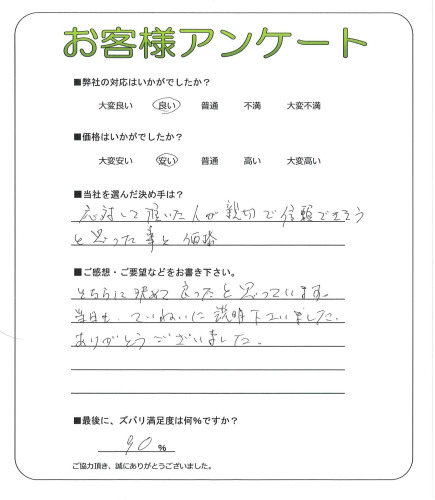 お客様アンケート
■弊社の対応はいかがでしたか?
大変良い 良い 普通 不満 大変不満
■価格はいかがでしたか?
大変安い 安い 普通 高い 大変高い
■当社を選んだ決め手は?
応対して頂いた人が親切で信頼できそう
と思った事と価格
■ご感想・ご要望などをお書き下さい。
そちらに決めて良ったと思っています。
当日も、ていねいに説明下さいました。
ありがとうございました。
■最後に、ズバリ満足度は何%ですか?
90 %
ご協力頂き、誠にありがとうございました。